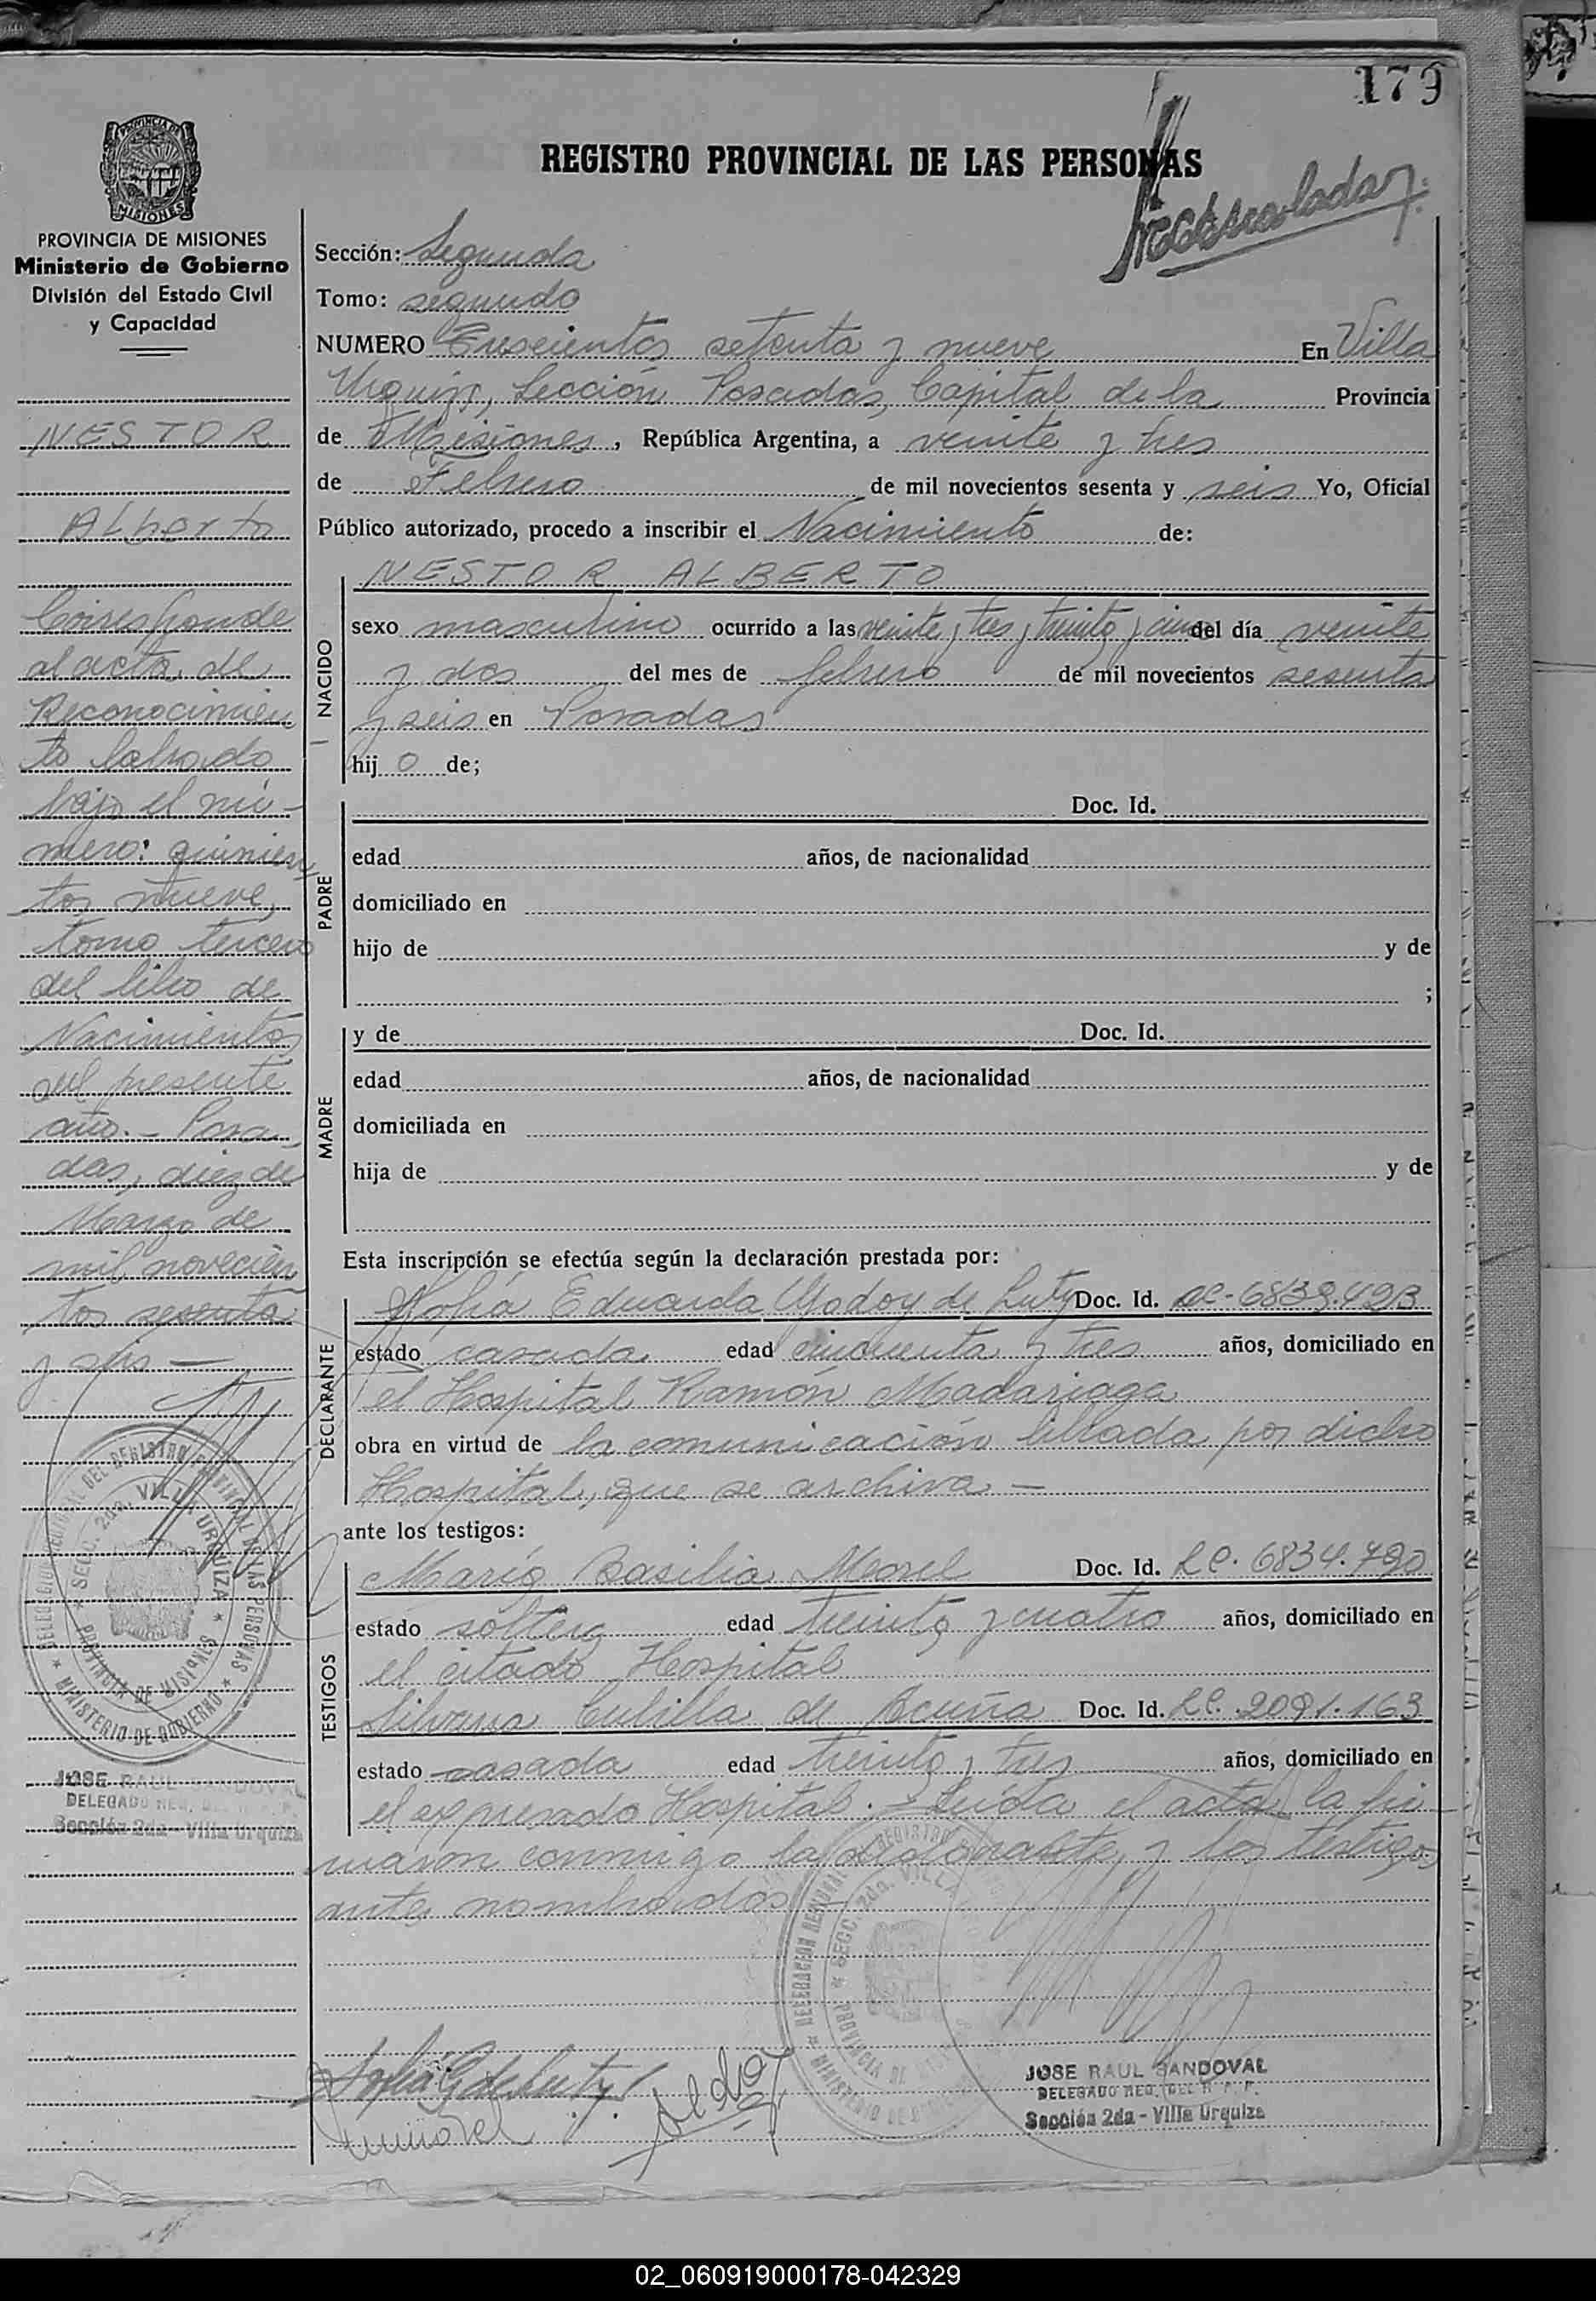 179
REGISTRO PROVINCIAL DE LAS PERSONAS
MISIONES
PROVINCIA DE MISIONES
Ministerio de Gobierno
División del Estado Civil
y Capacidad
NESTOR
Alberto
Corresponde
al acta de
Reconocimien
to labrado
bajo el nú-
mero: quinien
tos nueve,
tomo tercero
del libro de
Nacimientos
del presente
año.- Posa-
das, diez de
Marzo de
mil novecien
tos sesenta
y seis —
Sección: Segunda
Tomo: segundo
NUMERO Trescientos setenta y nueve En Villa
Urquiza, Sección Posadas, Capital de la Provincia
de Misiones, República Argentina, a veinte y tres
de Febrero de mil novecientos sesenta y seis Yo, Oficial
Público autorizado, procedo a inscribir el Nacimiento de:
NACIDO
NESTOR ALBERTO
sexo masculino ocurrido a las veinte y tres y treinta y cinco del día veinte
y dos del mes de febrero de mil novecientos sesenta
y seis en Posadas
hij o de;
PADRE
Doc. Id.
edad años, de nacionalidad
domiciliado en
hijo de y de
;
MADRE
y de Doc. Id.
edad años, de nacionalidad
domiciliada en
hija de y de
Esta inscripción se efectúa según la declaración prestada por:
DECLARANTE
Sofía Eduarda Godoy de Luty Doc. Id. LC-6839.493
estado casada edad cincuenta y tres años, domiciliado en
el Hospital Ramón Madariaga
obra en virtud de la comunicación librada por dicho
Hospital, que se archiva —
ante los testigos:
TESTIGOS
María Basilia Morel Doc. Id. LC. 6834.790
estado soltera edad treinta y cuatro años, domiciliado en
el citado Hospital
Silvana Cubilla de Acuña Doc. Id. LC. 2091.163
estado casada edad treinta y tres años, domiciliado en
el expresado Hospital. - Leída el acta la fir-
maron conmigo la declarante y los testigos
antes nombrados
JOSE RAUL SANDOVAL
DELEGADO REG. DEL R. P. P.
Sección 2da - Villa Urquiza
JOSE RAUL SANDOVAL
DELEGADO REG. DEL R. P. P.
Sección 2da - Villa Urquiza
02_060919000178-042329